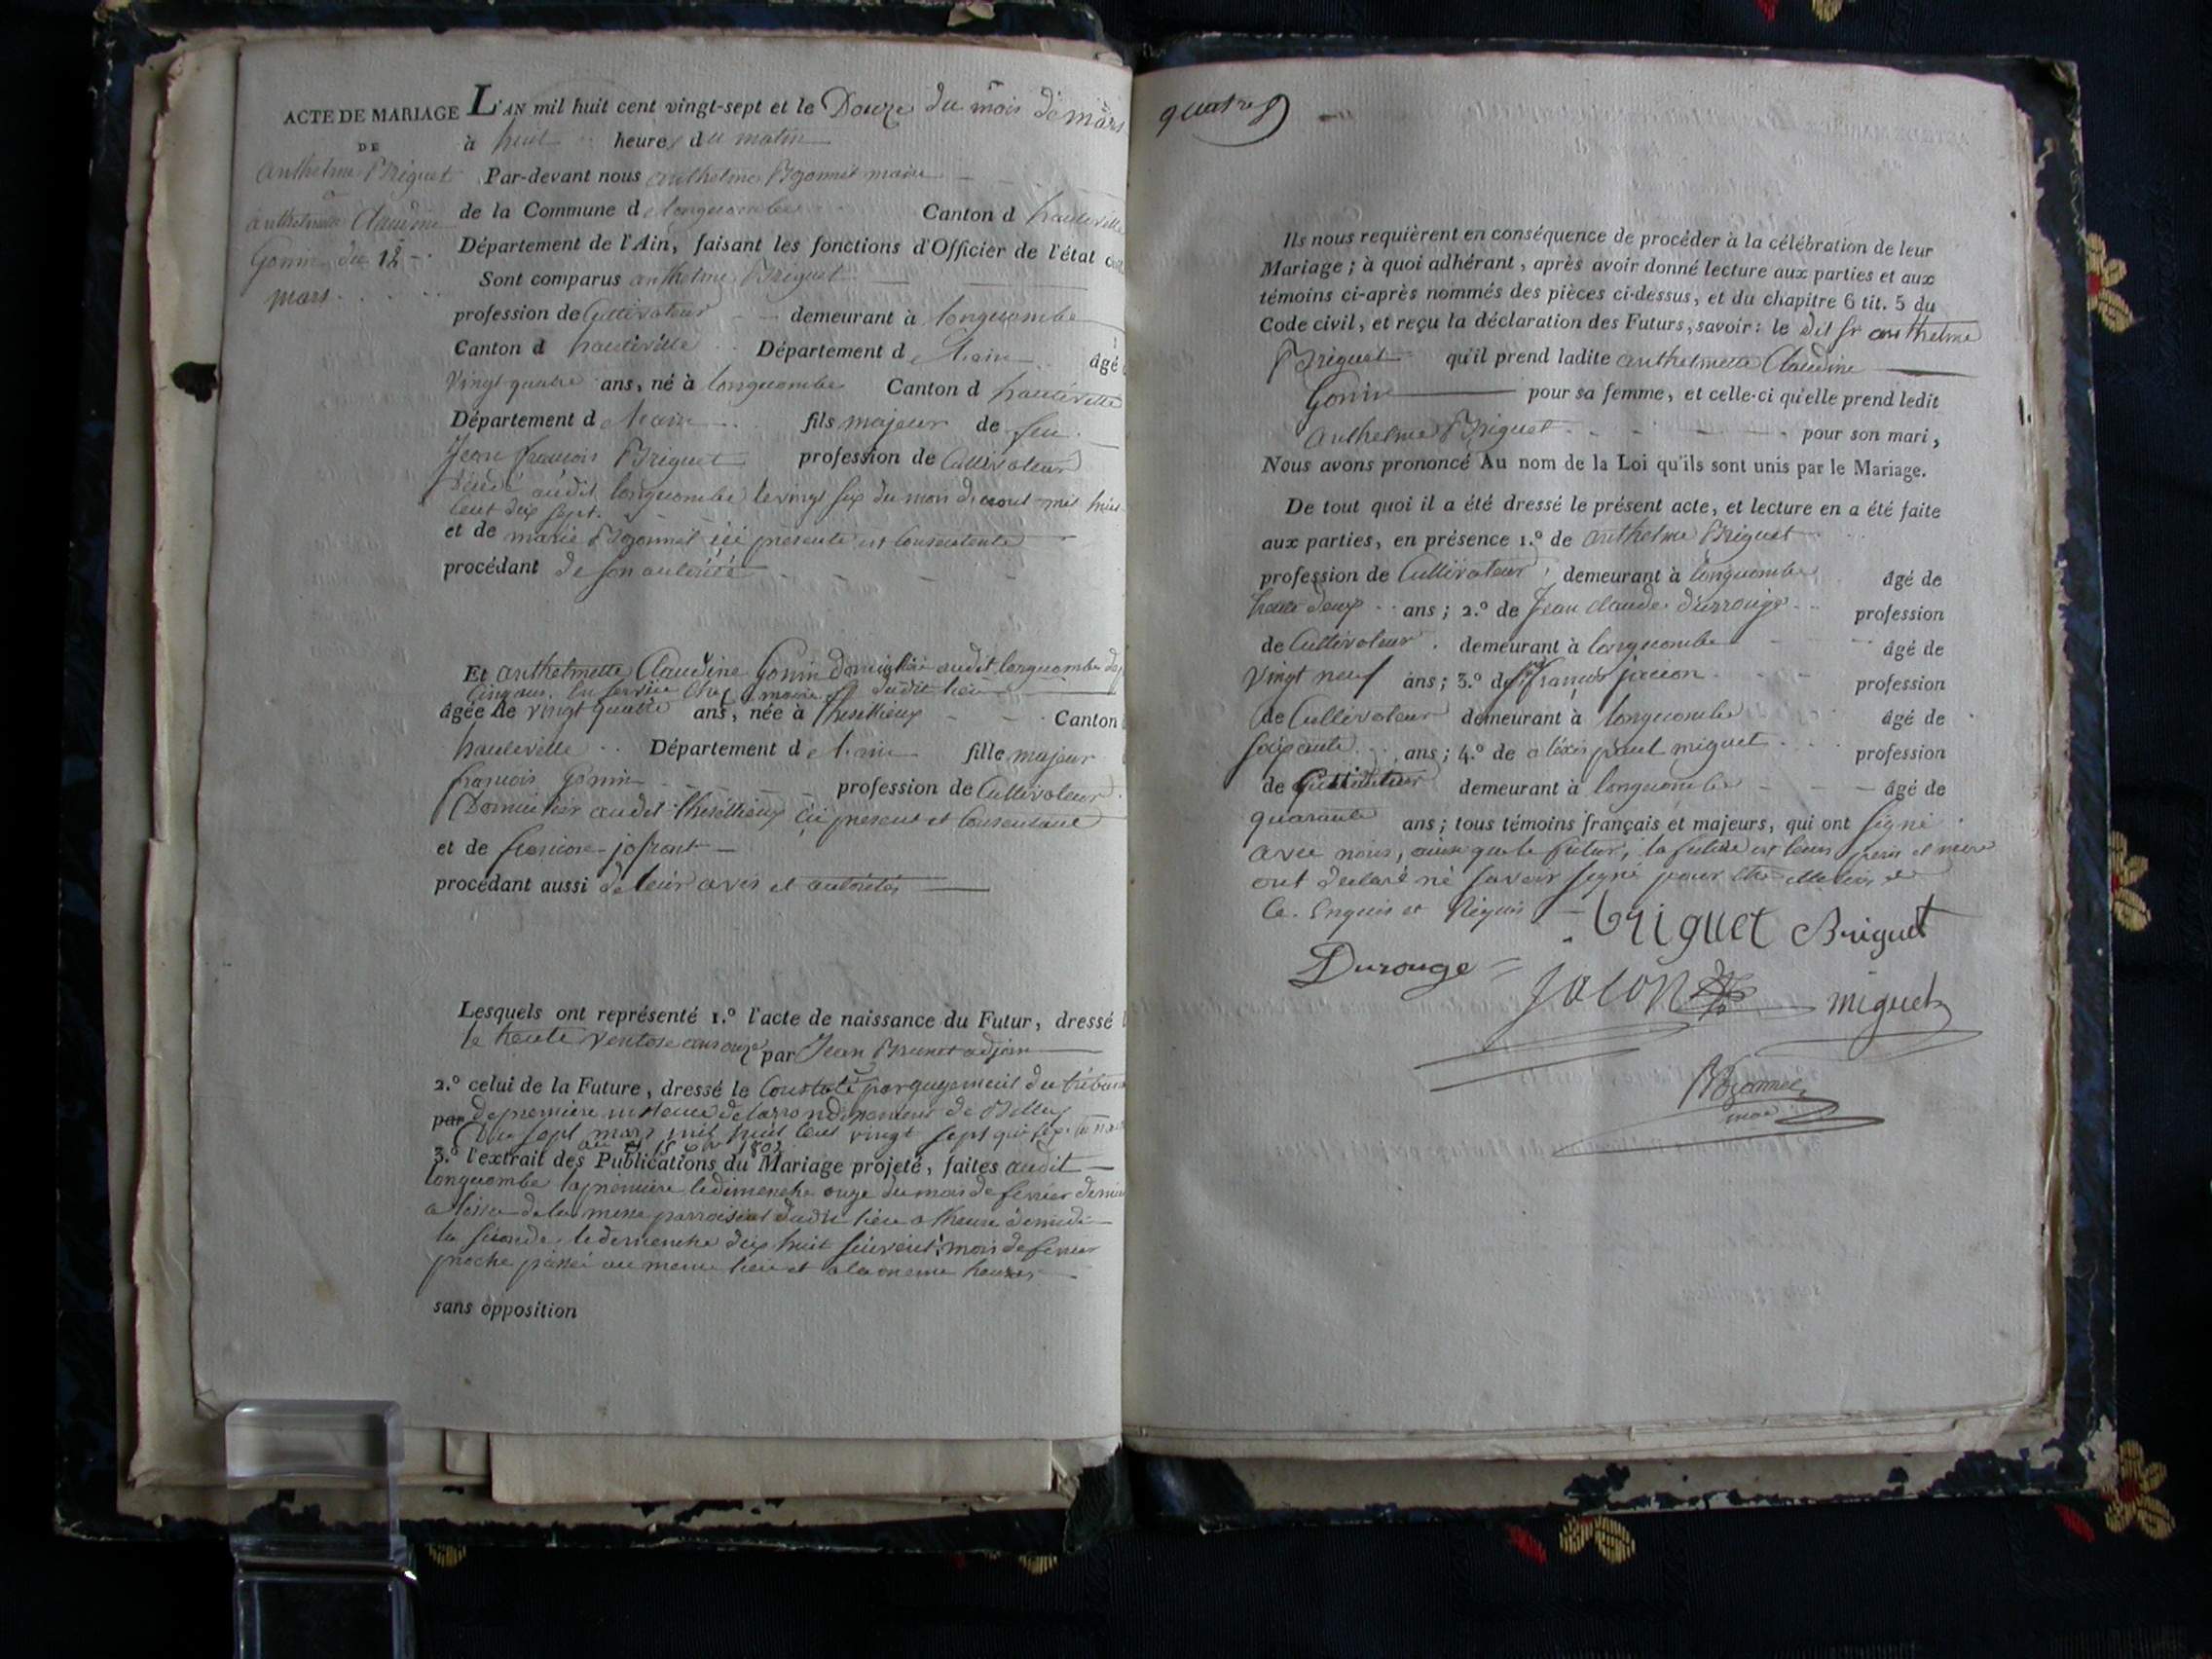 ACTE DE MARIAGE
DE
anthelme Briguet
anthelmette Claudine
Gonin du 12
mars
L'AN mil huit cent vingt-sept et le Douze du mois de mars
à huit heures du matin
Par-devant nous anthelme maire
de la Commune de longecombe Canton d hauteville
Département de l'Ain, faisant les fonctions d'Officier de l'état
Sont comparus anthelme Briguet
profession de Cultivateur demeurant à longecombe
Canton d hauteville Département de l'ain âgé
vingt quatre ans, né à longecombe Canton d hauteville
Département de l'ain fils majeur de feu
Jean françois Briguet profession de Cultivateur
audit longecombe le vingt six du mois de aout mil huit
cent dix sept.
et de marie ici presente et Consentente
procédant de son autorité
Et anthelmette Claudine Gonin audit longecombe
Cinq ans. En service Chez maire dudit lieu
âgée de vingt quatre ans, née à Canton
hauteville Département de l'ain fille majeur
françois Gonin profession de Cultivateur
audit ici present et Consentant
et de
procédant aussi de leur avis et autorités
Lesquels ont représenté 1.º l'acte de naissance du Futur, dressé
le trente ventose an onze par Jean Brunet adjoin
2.º celui de la Future, dressé le Constaté par jugement du
par de première instance de l'arrondissement de Belley
Du sept mars mil huit Cent vingt sept
1802
3.º l'extrait des Publications du Mariage projeté, faites audit
longecombe la première le dimenche onze du mois de fevrier
de la messe dudit lieu a l'heure de midi
la seconde le dimenche dix huit mois de fevrier
proche passé au meme lieu et a la meme heure
sans opposition
quatre
Ils nous requièrent en conséquence de procéder à la célébration de leur
Mariage ; à quoi adhérant, après avoir donné lecture aux parties et aux
témoins ci-après nommés des pièces ci-dessus, et du chapitre 6 tit. 5 du
Code civil, et reçu la déclaration des Futurs, savoir : le dit Sr anthelme
Briguet qu'il prend ladite anthelmette Claudine
Gonin pour sa femme, et celle-ci qu'elle prend ledit
anthelme Briguet pour son mari,
Nous avons prononcé Au nom de la Loi qu'ils sont unis par le Mariage.
De tout quoi il a été dressé le présent acte, et lecture en a été faite
aux parties, en présence 1.º de anthelme Briguet
profession de Cultivateur demeurant à longecombe âgé de
trente deux ans ; 2.º de Jean Claude profession
de Cultivateur demeurant à longecombe âgé de
vingt neuf ans ; 3.º de françois profession
de Cultivateur demeurant à longecombe âgé de
soixante ans ; 4.º de paul miguet profession
de Cultivateur demeurant à longecombe âgé de
quarante ans ; tous témoins français et majeurs, qui ont signé
avec nous, ainsi que le futur, la future et leurs et mere
ont declaré ne savoir signé pour
Ce. Enquis et Requis
briguet Briguet
Durouge
Jacon miguet